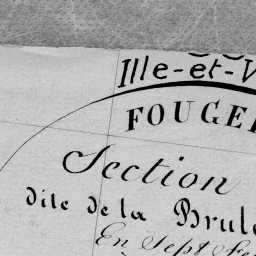 Ille-et-V
FOUGE
Section
dite de la Brul
En Sept